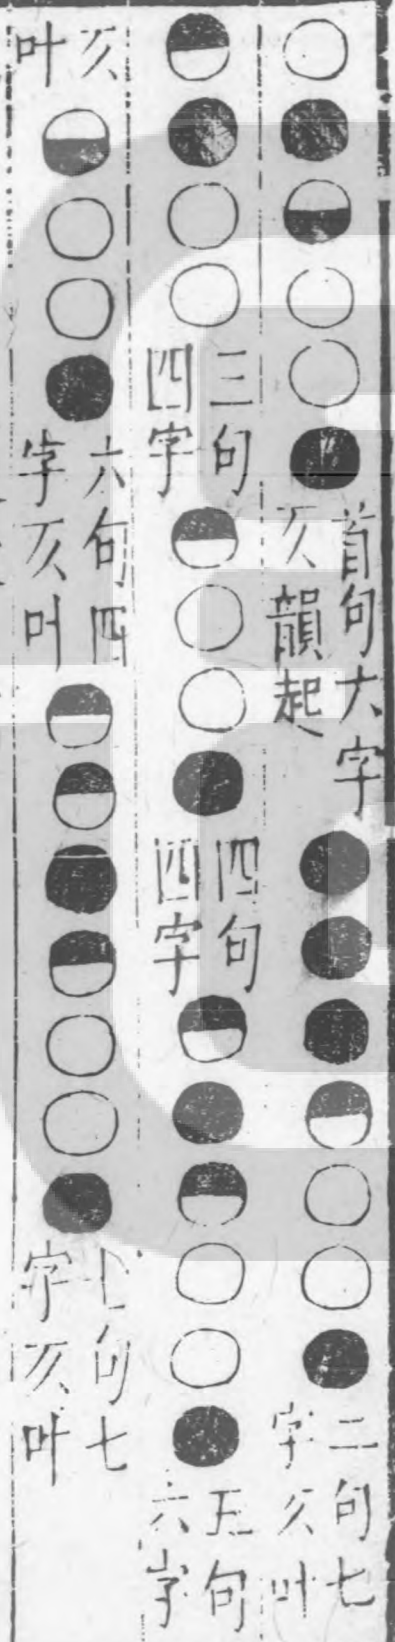 首句六字
仄韻起
二句七
字仄叶
三句
四字
四句
四字
五句
六字
仄
叶
六句四
字仄叶
七句七
字仄叶